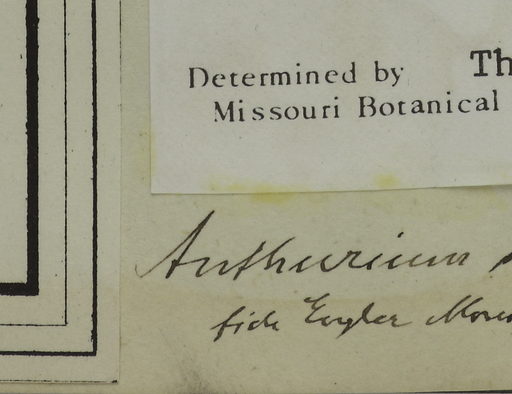 Determined by Th
Missouri Botanical
Anthurium
fide Engler